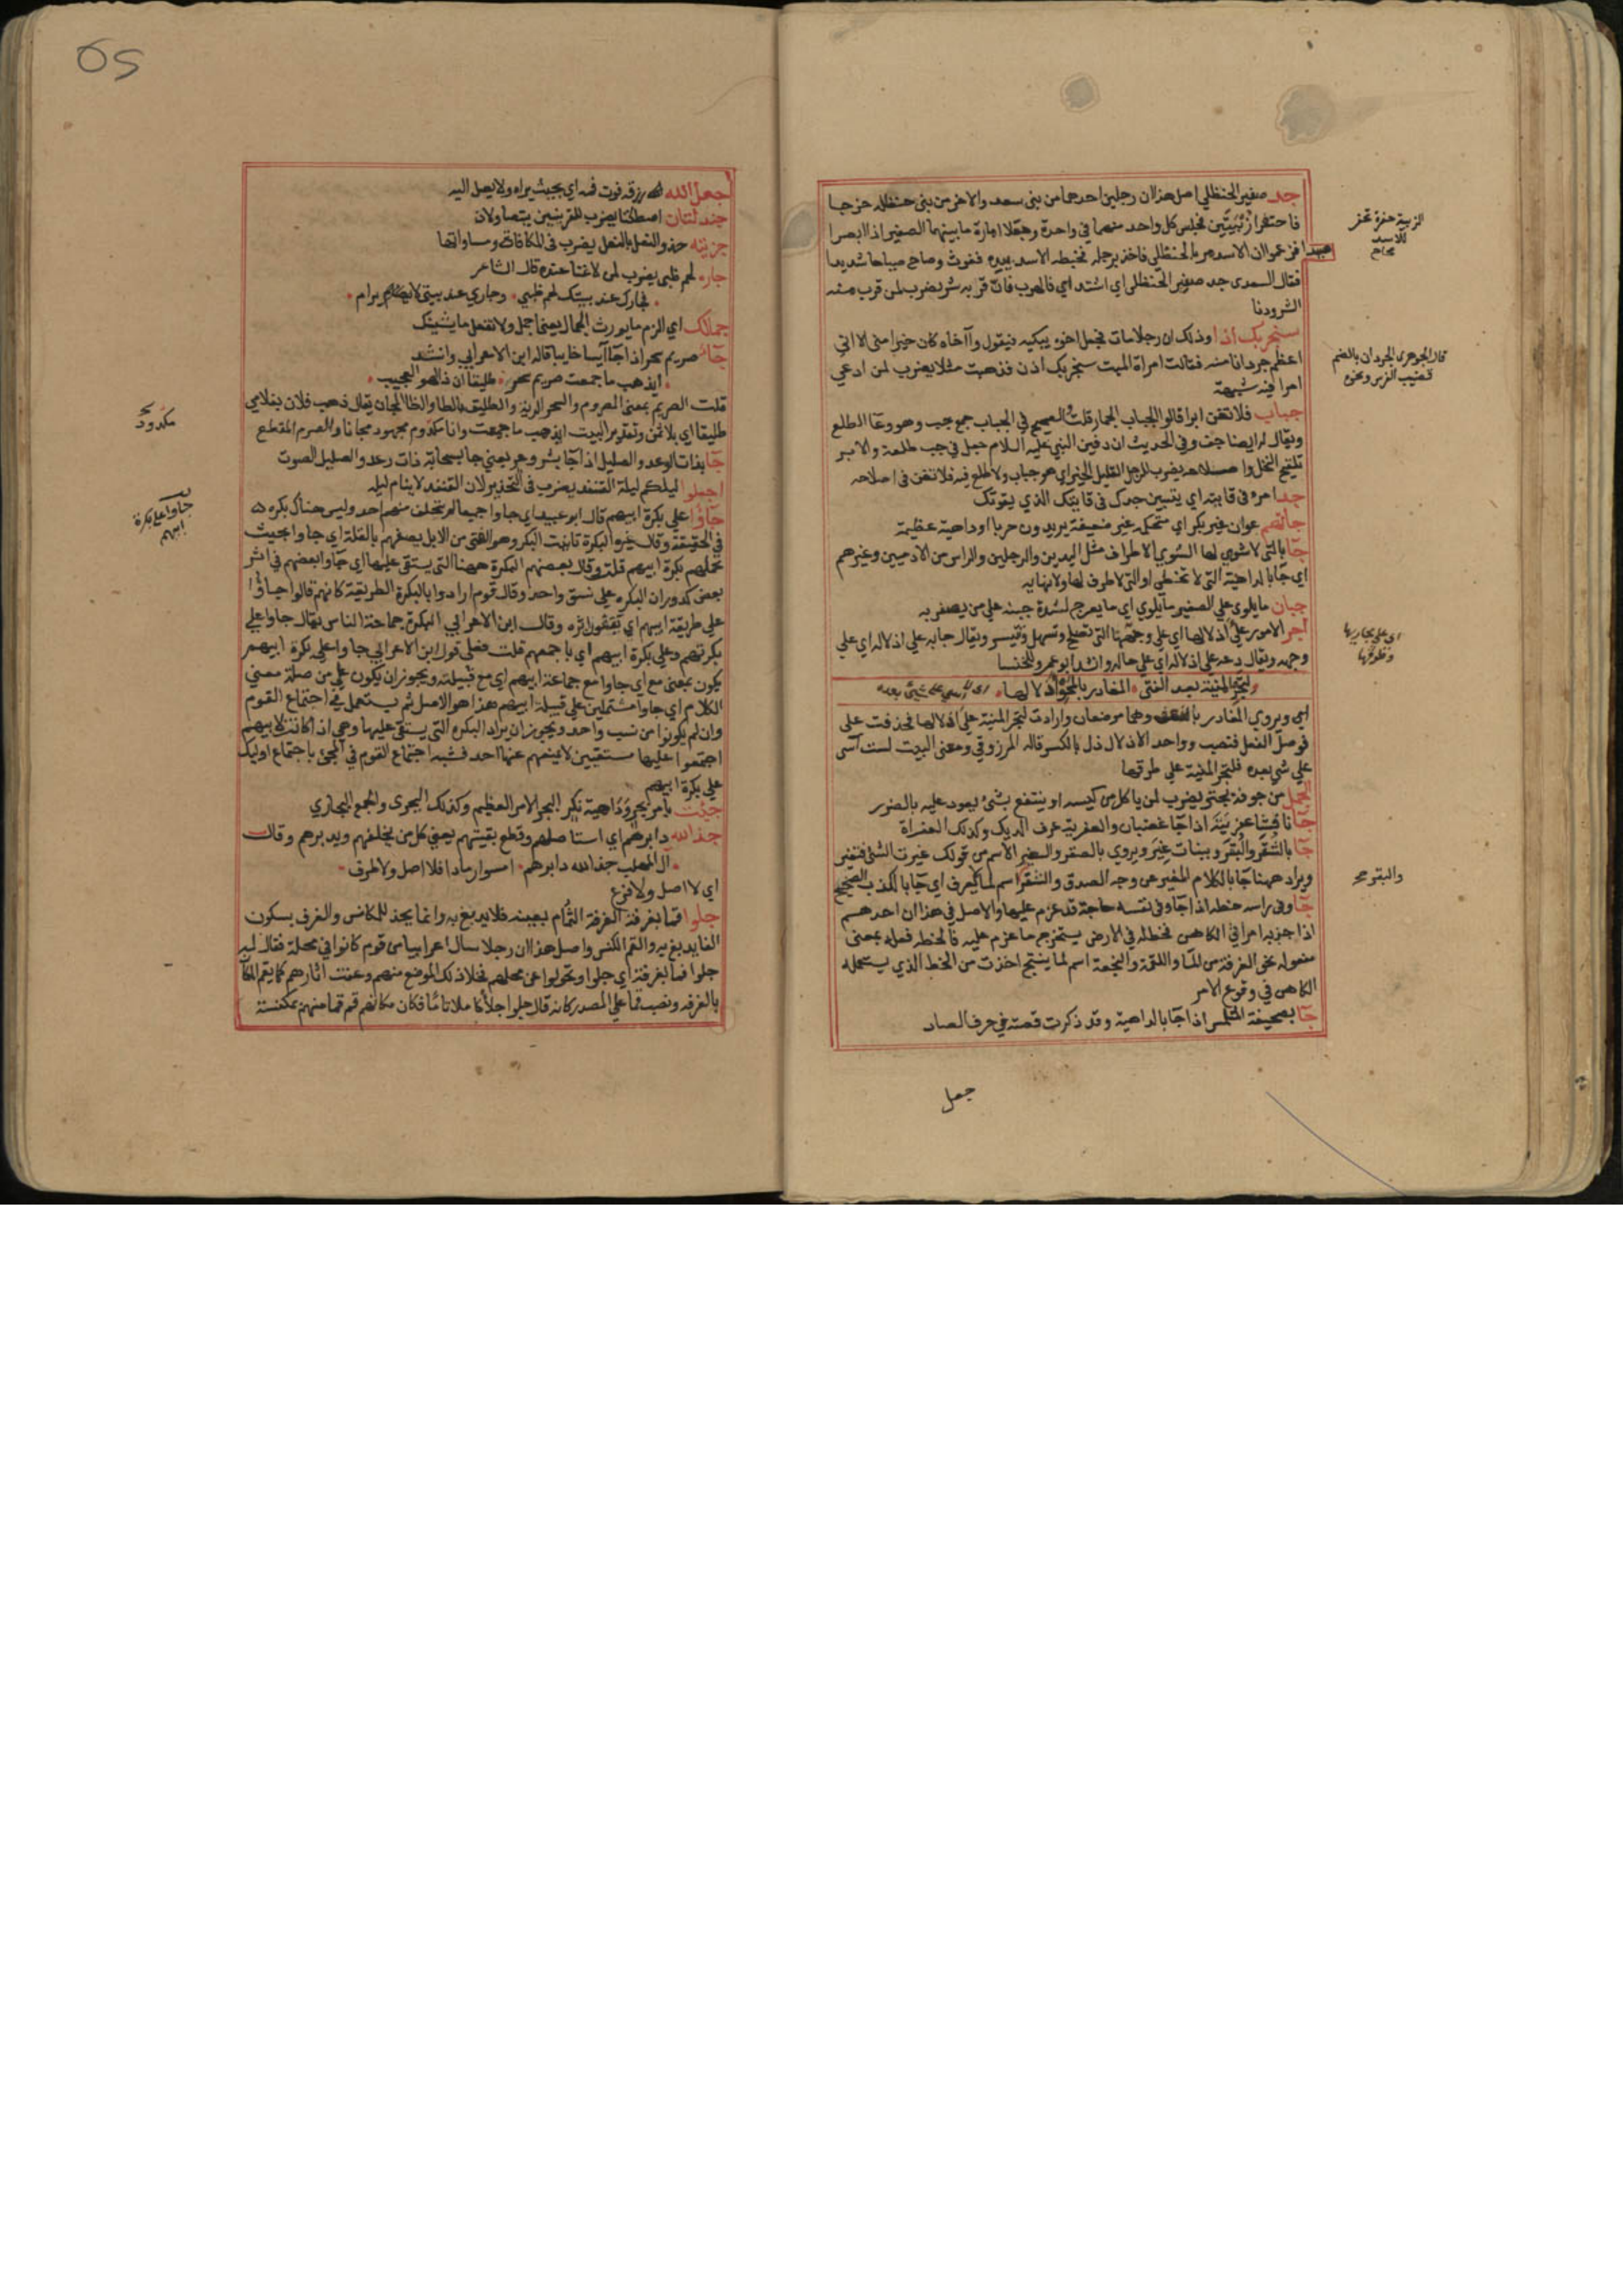 جد صفير الحنظلي اصل هذا ان رجلين احدهما من بني سعد والاخر من بني حنظله خرجا
فاحتفرا زُبْيَتَين فجلس كل واحد منهما في واحدة وجعلا امارة ما بينهما الصفير اذا ابصرا
صيدا فزعموا ان الاسد مر بالحنظلي فاخذ برجله فخبطه الاسد بيده فغوث وصاح صياحا شديدا
فقال السعدى جد صفير الحنظلي اي اشتد اي فالهرب فانه قربه شر يضرب لمن قرب منه
الشر ودنا
سنجربك اذا وذلك ان رجلا مات فجعل اخوه يبكيه فيقول وا آخاه كان خيرا مني الا اني
اعظم جردانا منه فقالت امراة الميت سنجربك اذن فذهبت مثلا يضرب لمن ادعي
امرا فيه شبهة
جباب فلا تعن ابرا قالوا الجباب الجمار قلت الصحيح في الجباب جمع جب وهو وعا الطلع
ويقال له ايضا جف وفي الحديث ان دفين النبي عليه السلام جعل في جب طلعة والابر
تلقيح النخل واصلاحه يضرب للرجل القليل الخير اي هو جباب ولا طلع فيه فلا تعن في اصلاحه
جد امره في قايته اي يتبين جدك في قايتك الذي يقوتك
جاتهم عوان غير بكر اي مستحكمه غير ضعيفة يريدون حربا او داهية عظيمة
جا بالتي لا شوي لها الشوي الاطراف مثل اليدين والرجلين والراس من الادميين وغيرهم
اي جا بالداهية التي لا تخطي او التي لا طرف لها ولا نهاية
جبان ما يلوي علي الصفير ما يلوي اي ما يعرج لشدة جبنه علي من يصفر به
اجر الامور علي اذلالها اي علي وجوهها التي تصلح وتسهل وتيسر ويقال جا به علي اذلاله اي علي
وجهه ويقال دعه علي اذلاله اي علي حاله وانشد ابو عمرو للخنسا
لتجر المنية بعد الفتى المغادر بالمحو اذلالها
اي ويروي المغادر بالنعف وهما موضعان وارادت لتجر المنية علي اذلالها فحذفت علي
فوصل الفعل فنصب وواحد الاذلال ذل بالكسر قاله المرزوقي ومعني البيت لست آسى
علي شي بعده فلتجر المنية علي طرقها
الجمل من جوفه يجتر يضرب لمن ياكل من كيسه او ينتفع بشئ يعود عليه بالضرر
جا نافشا عفريته اذا جا غضبان والعفرية عرف الديك وكذلك العفراة
جا بالشقر والبقر وبنات غير ويروي بالصقر والغير الاسم من قولك غيرت الشئ فتغير
ويراد ههنا جا بالكلام المغير عن وجه الصدق والشقر اسم لما لا يعرف اي جا بالكذب الصحيح
جا وفي راسه خطه اذا جا وفي نفسه حاجة قد عزم عليها والاصل في هذا ان احدهم
اذا حزبه امر اتي الكاهن فخط له في الارض يستخرج ما عزم عليه فالخطه فعله بمعني
مفعوله نحو الغرفة من الما واللقمة والنجعة اسم لما ينتجع اخذت من الخط الذي يستعمله
الكاهن في وقوع الامر
جا بصحيفة المتلمس اذا جا بالداهية وقد ذكرت قصته في حرف الصاد
جعل
الزبية حفرة تحفر
للاسد
صحاح
قال الجوهري الجردان بالضم
قضيب الفرس ونحوه
اي علي مجاريها
وطرقها
والبقر صح
جعل الله رزقه فوت فمه اي بحيث يراه ولا يصل اليه
جندلتان اصطكتا يضرب للقرينين يتصاولان
جزيته حذو النعل بالنعل يضرب في المكافاة ومساواتها
جاره لحم ظبي يضرب لمن لا غنا عنده قال الشاعر
فجارك عند بيتك لحم ظبي وجاري عند بيتي لا يرام
جمالك اي الزم ما يورث الجمال يعني اجمل ولا تفعل ما يشينك
جا صريم سحر اذا جا آيسا خايبا قاله ابن الاعرابي وانشد
ايذهب ما جمعت صريم سحر طليفا ان ذا لهو العجيب
قلت الصريم بمعنى المصروم والسحر الرية والطليف بالطا والظا المجان يقال ذهب فلان بغلامي
طليفا اي بلا ثمن وتقدير البيت ايذهب ما جمعت وانا مكدوم مجهود مجانا والصرم القطع
جا بذات الرعد والصليل اذا جا بشر وعر يعني جا بسحابة ذات رعد والصليل الصوت
اجعلوا ليلكم ليلة القنفذ يضرب في التحذير لان القنفذ لا ينام ليله
جاوا علي بكرة ابيهم قال ابو عبيد اي جاوا جميعا لم يتخلف منهم احد وليس هناك بكره
في الحقيقة وقال غيره البكرة تانيث البكر وهو الفتي من الابل يصفهم بالقلة اي جاوا بحيث
تحملهم بكرة ابيهم قلة وقال بعضهم البكرة ههنا التي يستقى عليها اي جاوا بعضهم في اثر
بعض كدوران البكره علي نسق واحد وقال قوم ارادوا بالبكرة الطريقة كانهم قالوا جاوا
علي طريقة ابيهم اي يقفون اثره وقال ابن الاعرابي البكرة جماعة الناس يقال جاوا علي
بكرتهم وعلي بكرة ابيهم اي باجمعهم قلت فعلي قول ابن الاعرابي جاوا علي بكرة ابيهم
يكون بمعني مع اي جاوا مع جماعة ابيهم اي مع قبيلته ويجوز ان يكون علي من صلة معني
الكلام اي جاوا مشتملين علي قبيلة ابيهم هذا هو الاصل ثم يستعمل في اجتماع القوم
وان لم يكونوا من نسب واحد ويجوز ان يراد البكره التي يستقى عليها وهي اذا كانت لابيهم
اجتمعوا عليها مستقين لا يمنعهم عنها احد فشبه اجتماع القوم في المجئ باجتماع اوليك
علي بكرة ابيهم
جيت بامر بجر وداهية نكر البجر الامر العظيم وكذلك البجرى والجمع البجاري
جذ الله دابرهم اي استاصلهم وقطع بقيتهم يعني كل من يخلفهم ويدبرهم وقال
آل المهلب جذ الله دابرهم امسوا رمادا فلا اصل ولا طرف
اي لا اصل ولا فرع
جلوا قما بغرفة الغرفة الثمام بعينه فلا يدبغ به وانما يجذ للمكانس والغرف بسكون
الفا يدبغ به والقم الكنس واصل هذا ان رجلا سال اعرابيا من قوم كانوا في محلة فقال له
جلوا قما بغرفة اي جلوا وتحولوا عن محلهم فخلا ذلك الموضع منهم وعفت اثارهم كما يقم المكان
بالغرفه ونصب قما علي المصدر كانه قال جلوا جلا كاملا تاما فكان مكانهم قم قما منهم بمكنسة
مكدود
جاوا علي بكرة
ابيهم